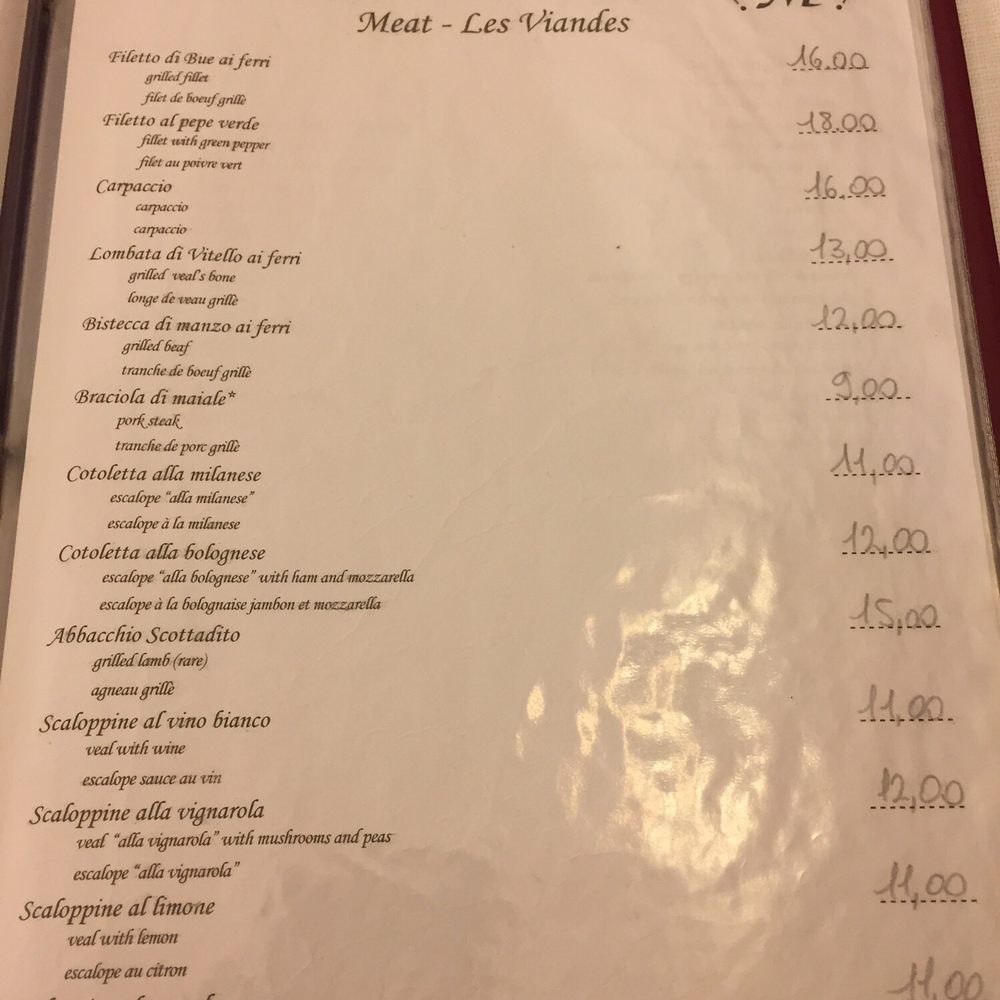 Meat - Les Viandes
Filetto di Bue ai ferri 16.00
grilled fillet
filet de boeuf grillè
Filetto al pepe verde 18.00
fillet with green pepper
filet au poivre vert
Carpaccio 16.00
carpaccio
carpaccio
Lombata di Vitello ai ferri 13,00
grilled veal's bone
longe de veau grillè
Bistecca di manzo ai ferri 12,00
grilled beaf
tranche de boeuf grillè
Braciola di maiale* 9,00
pork steak
tranche de porc grillè
Cotoletta alla milanese 11,00
escalope "alla milanese"
escalope à la milanese
Cotoletta alla bolognese 12,00
escalope "alla bolognese" with ham and mozzarella
escalope à la bolognaise jambon et mozzarella
Abbacchio Scottadito 15,00
grilled lamb (rare)
agneau grillè
Scaloppine al vino bianco 11,00
veal with wine
escalope sauce au vin
Scaloppine alla vignarola 12,00
veal "alla vignarola" with mushrooms and peas
escalope "alla vignarola"
Scaloppine al limone 11,00
veal with lemon
escalope au citron
11,00